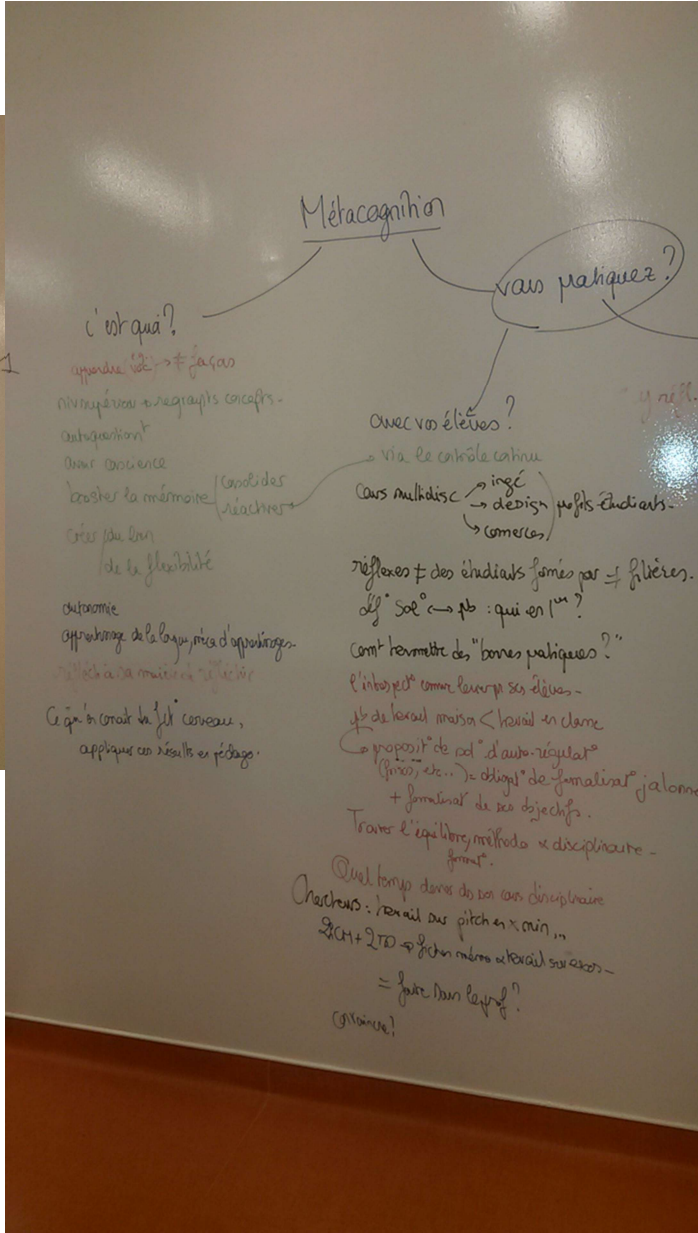 Métacognition
c'est quoi?
1
apprendre → ≠ façons
niv supérieur → regroupts concepts.
autoquestiont
avoir conscience
booster la mémoire consolider
réactiver
créer du lien
de la flexibilité
autonomie
apprentissage de la leçon, d'apprentissages.
réfléch à sa manière de réfléchir
Ce qu'on connait du fct° cerveau,
appliquer ces résults en pédago.
vous pratiquez?
y réfl.
avec vos élèves?
via le contrôle continu
Cours multidisc → ingé
→ design profils étudiants.
→ comerces
réflexes ≠ des étudiants formés par ≠ filières.
déf° Sol° ↔ pb : qui en 1er ?
comt transmettre des "bonnes pratiques?"
l'introspect° comme levier pr ses élèves.
pb de travail maison < travail en classe
proposit° de sol° d'auto-régulat°
(frises, etc..) = obligat° de formalisat° jalonne
+ formalisat° de ses objectifs.
Trouver l'équilibre, méthodo & disciplinaire.
format°.
Quel temps donner ds son cours disciplinaire
Chercheurs : travail sur pitch en x min...
2CM + 2TD → fiches mémo & travail sur exos.
= faire sans le prof?
convaincre!